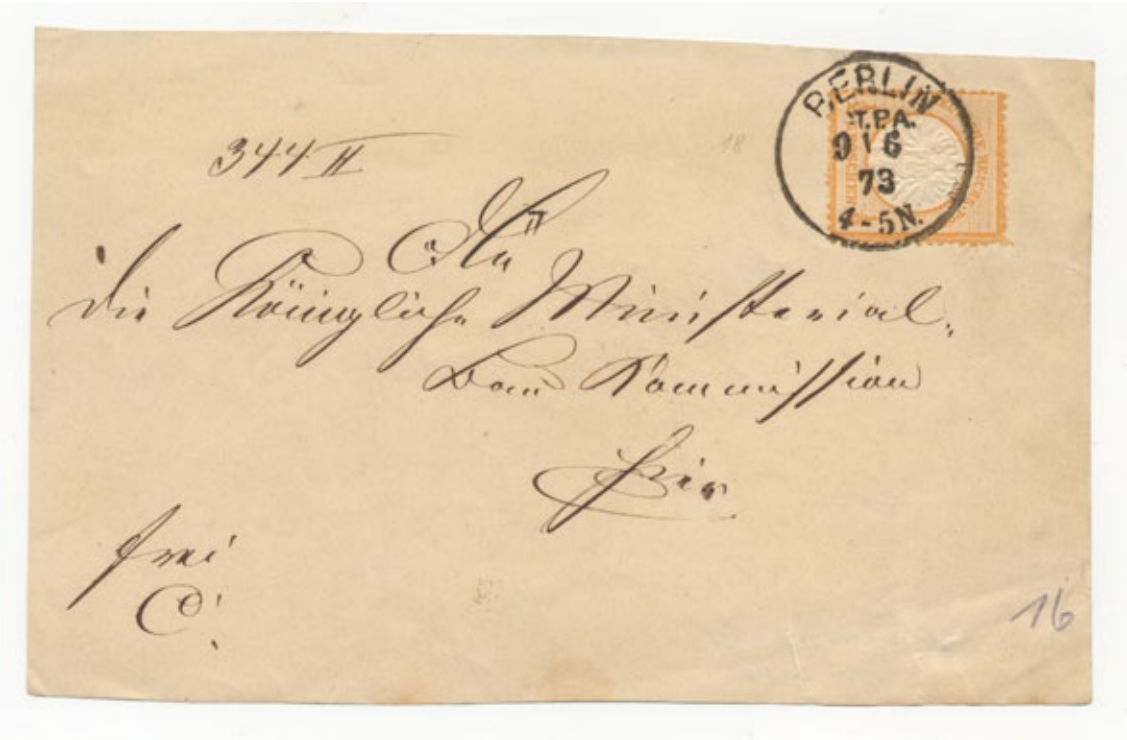 BERLIN
P.A.
9 6
73
4-5N.
18
344 II
An
die Königliche Ministerial-
Bau Kommission
hier
frei
C.
16